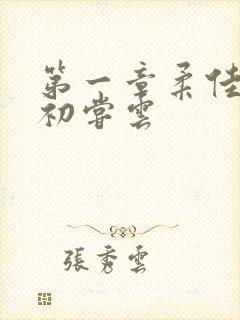 第一章柔佳
初嘗雲
張秀雲